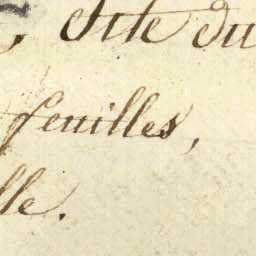 , Site du
feuilles,
lle.